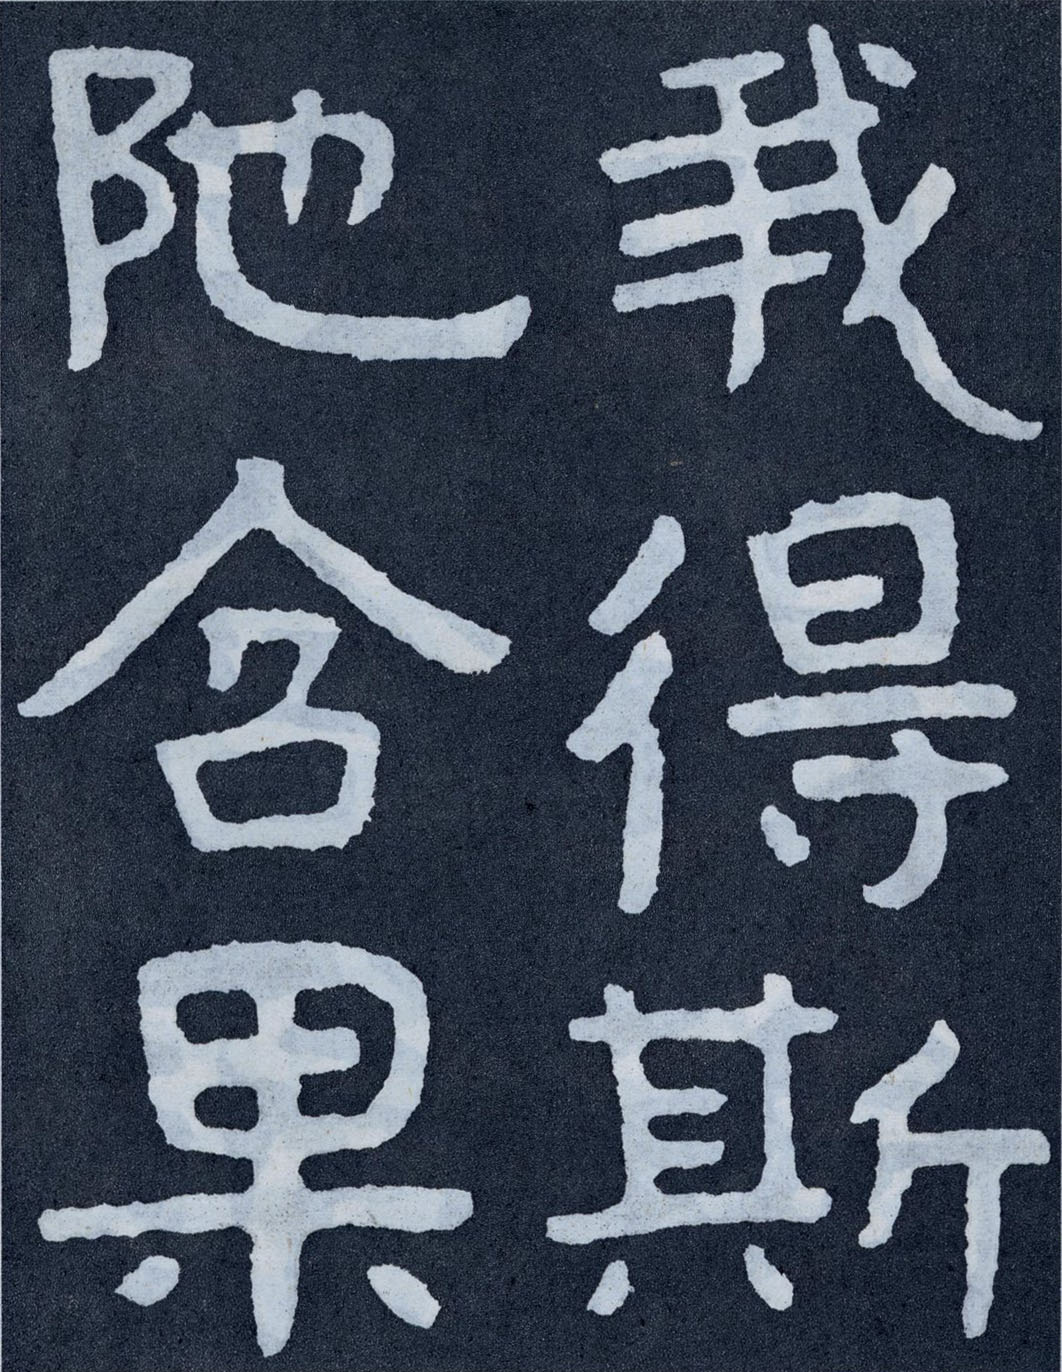 我得斯
阤含果